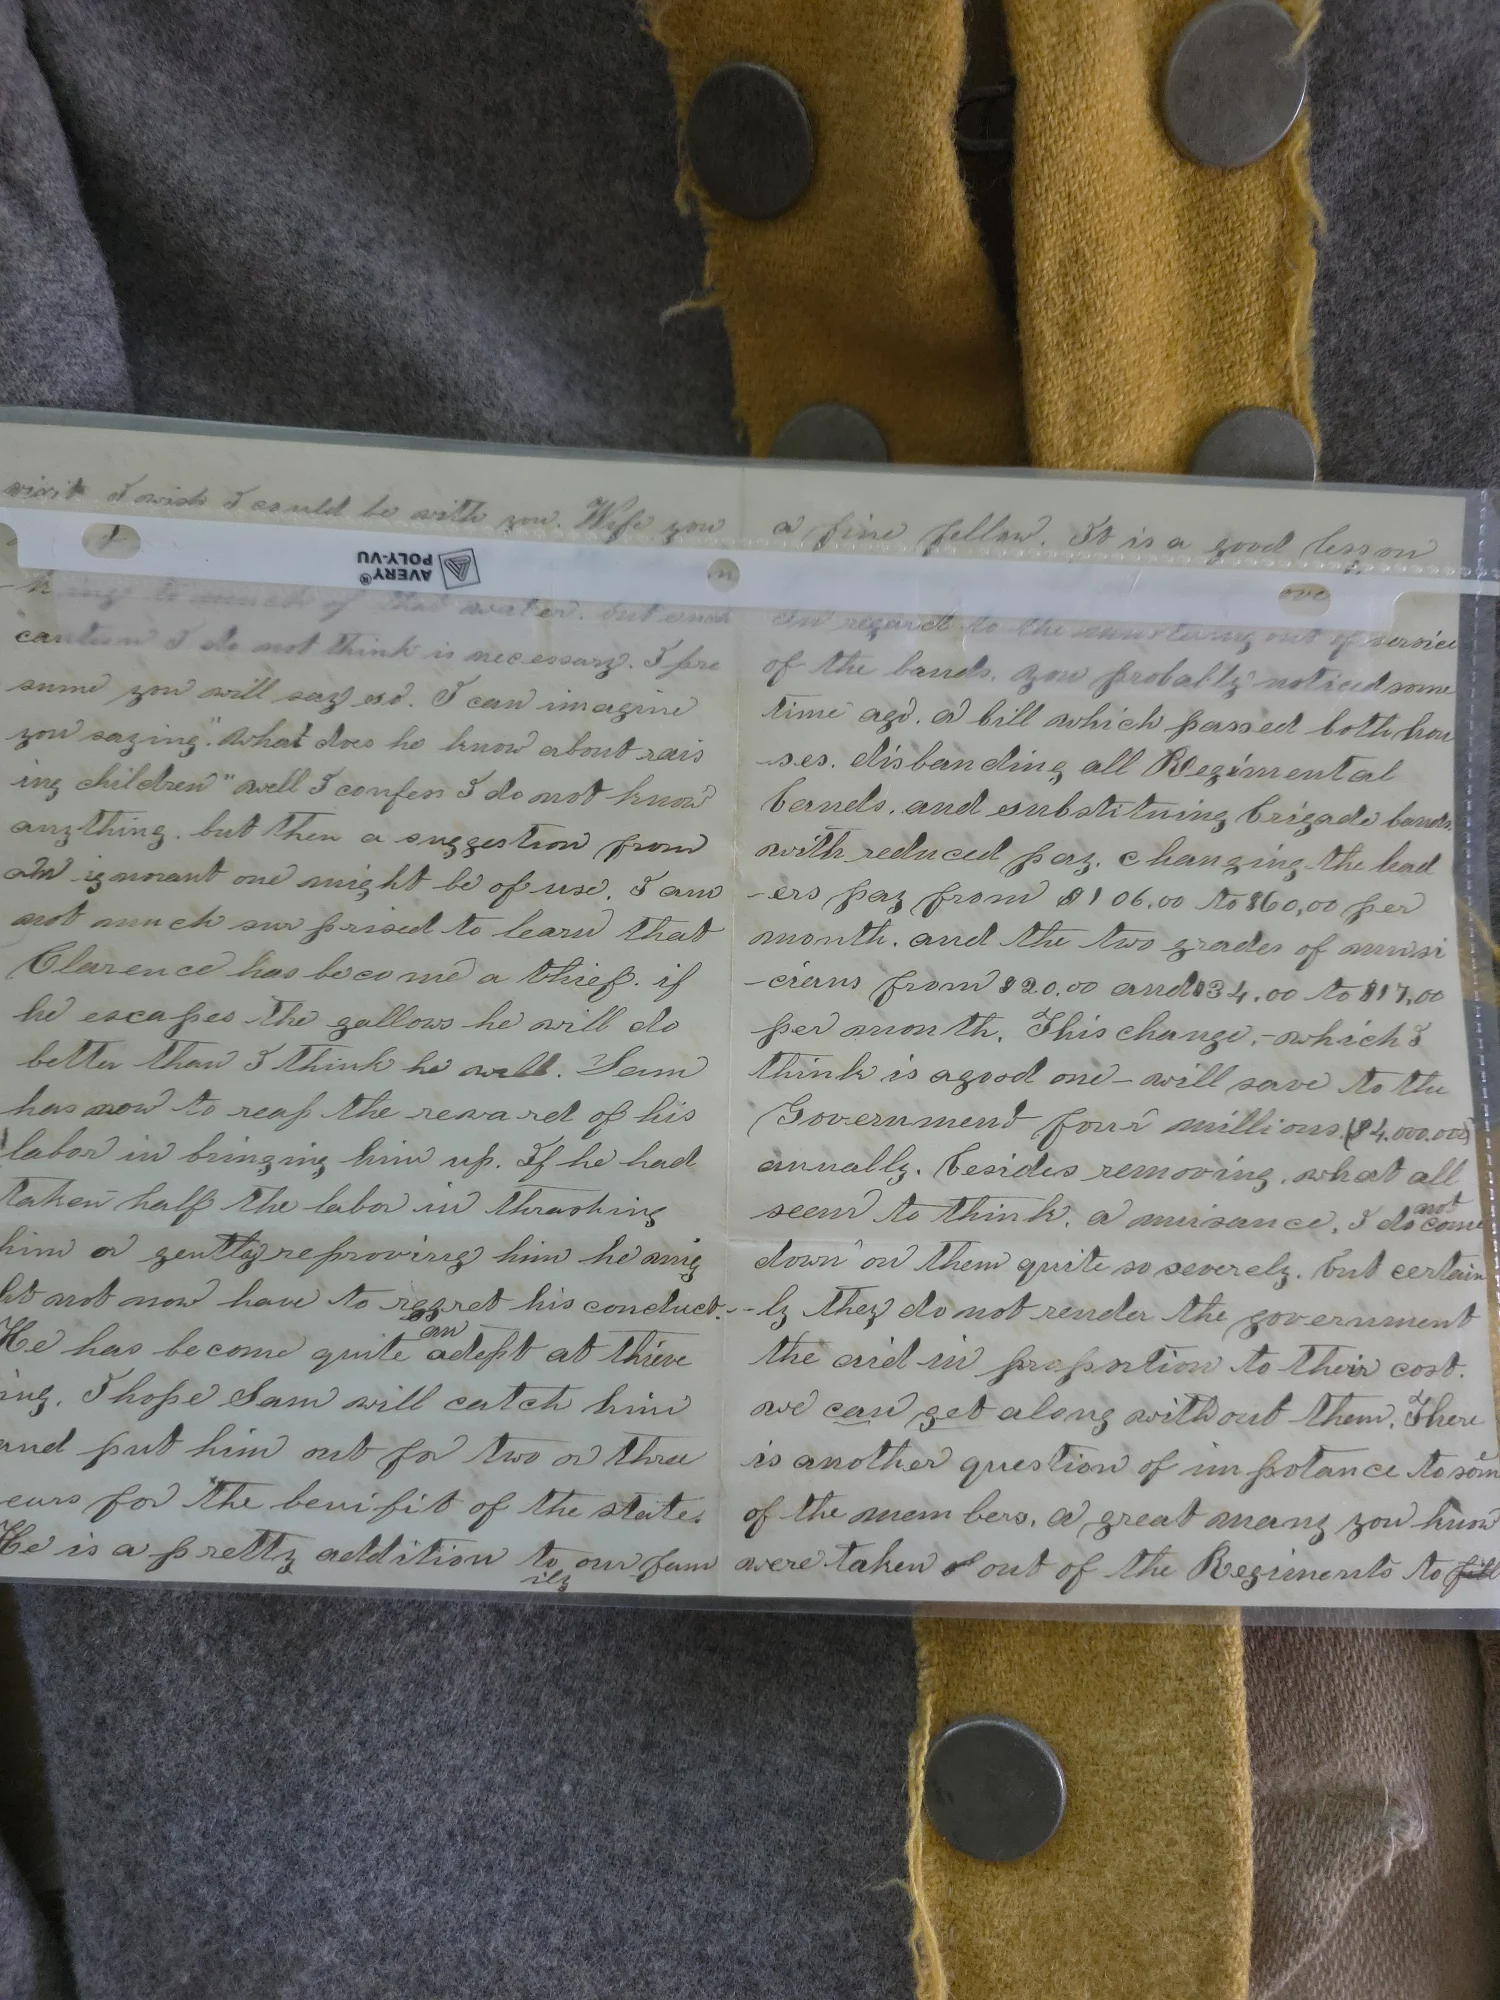 visit I wish I could be with you. Wife you
AVERY®
POLY-VU
to much of the water. but such
caution I do not think is necessary. I pre
sume you will say so. I can imagine
you saying. "What does he know about rais
ing children" well I confess I do not know
anything. but then a suggestion from
an ignorant one might be of use. I am
not much surprised to learn that
Clarence has become a thief. if
he escapes the gallows he will do
better than I think he will. Sam
has now to reap the reward of his
labor in bringing him up. If he had
taken half the labor in thrashing
him or gently reproving him he mig
ht not now have to regret his conduct.
He has become quite an adept at thieve
ing. I hope Sam will catch him
and put him out for two or three
ears for the benifit of the state.
He is a pretty addition to our fam
ily
a fine fellow. It is a good lesson
ove
In regard to the mustering out of service
of the bands. you probably noticed some
time ago. a bill which passed both hou
-ses. disbanding all Regimental
bands. and substituing brigade bands
with reduced pay. changing the lead
-ers pay from $106.00 to $60,00 per
month. and the two grades of musi
-cians from $20.00 and $34.00 to $17,00
per month. This change, - which I
think is a good one - will save to the
Government four millions ($4.000.000)
anually. besides removing, what all
seem to think. a nuisance. I do not come
down on them quite so severely. but certain
-ly they do not render the government
the aid in proportion to their cost.
we can get along without them. There
is another question of impotance to som
of the members. a great many you know
were taken out of the Regiments to fill